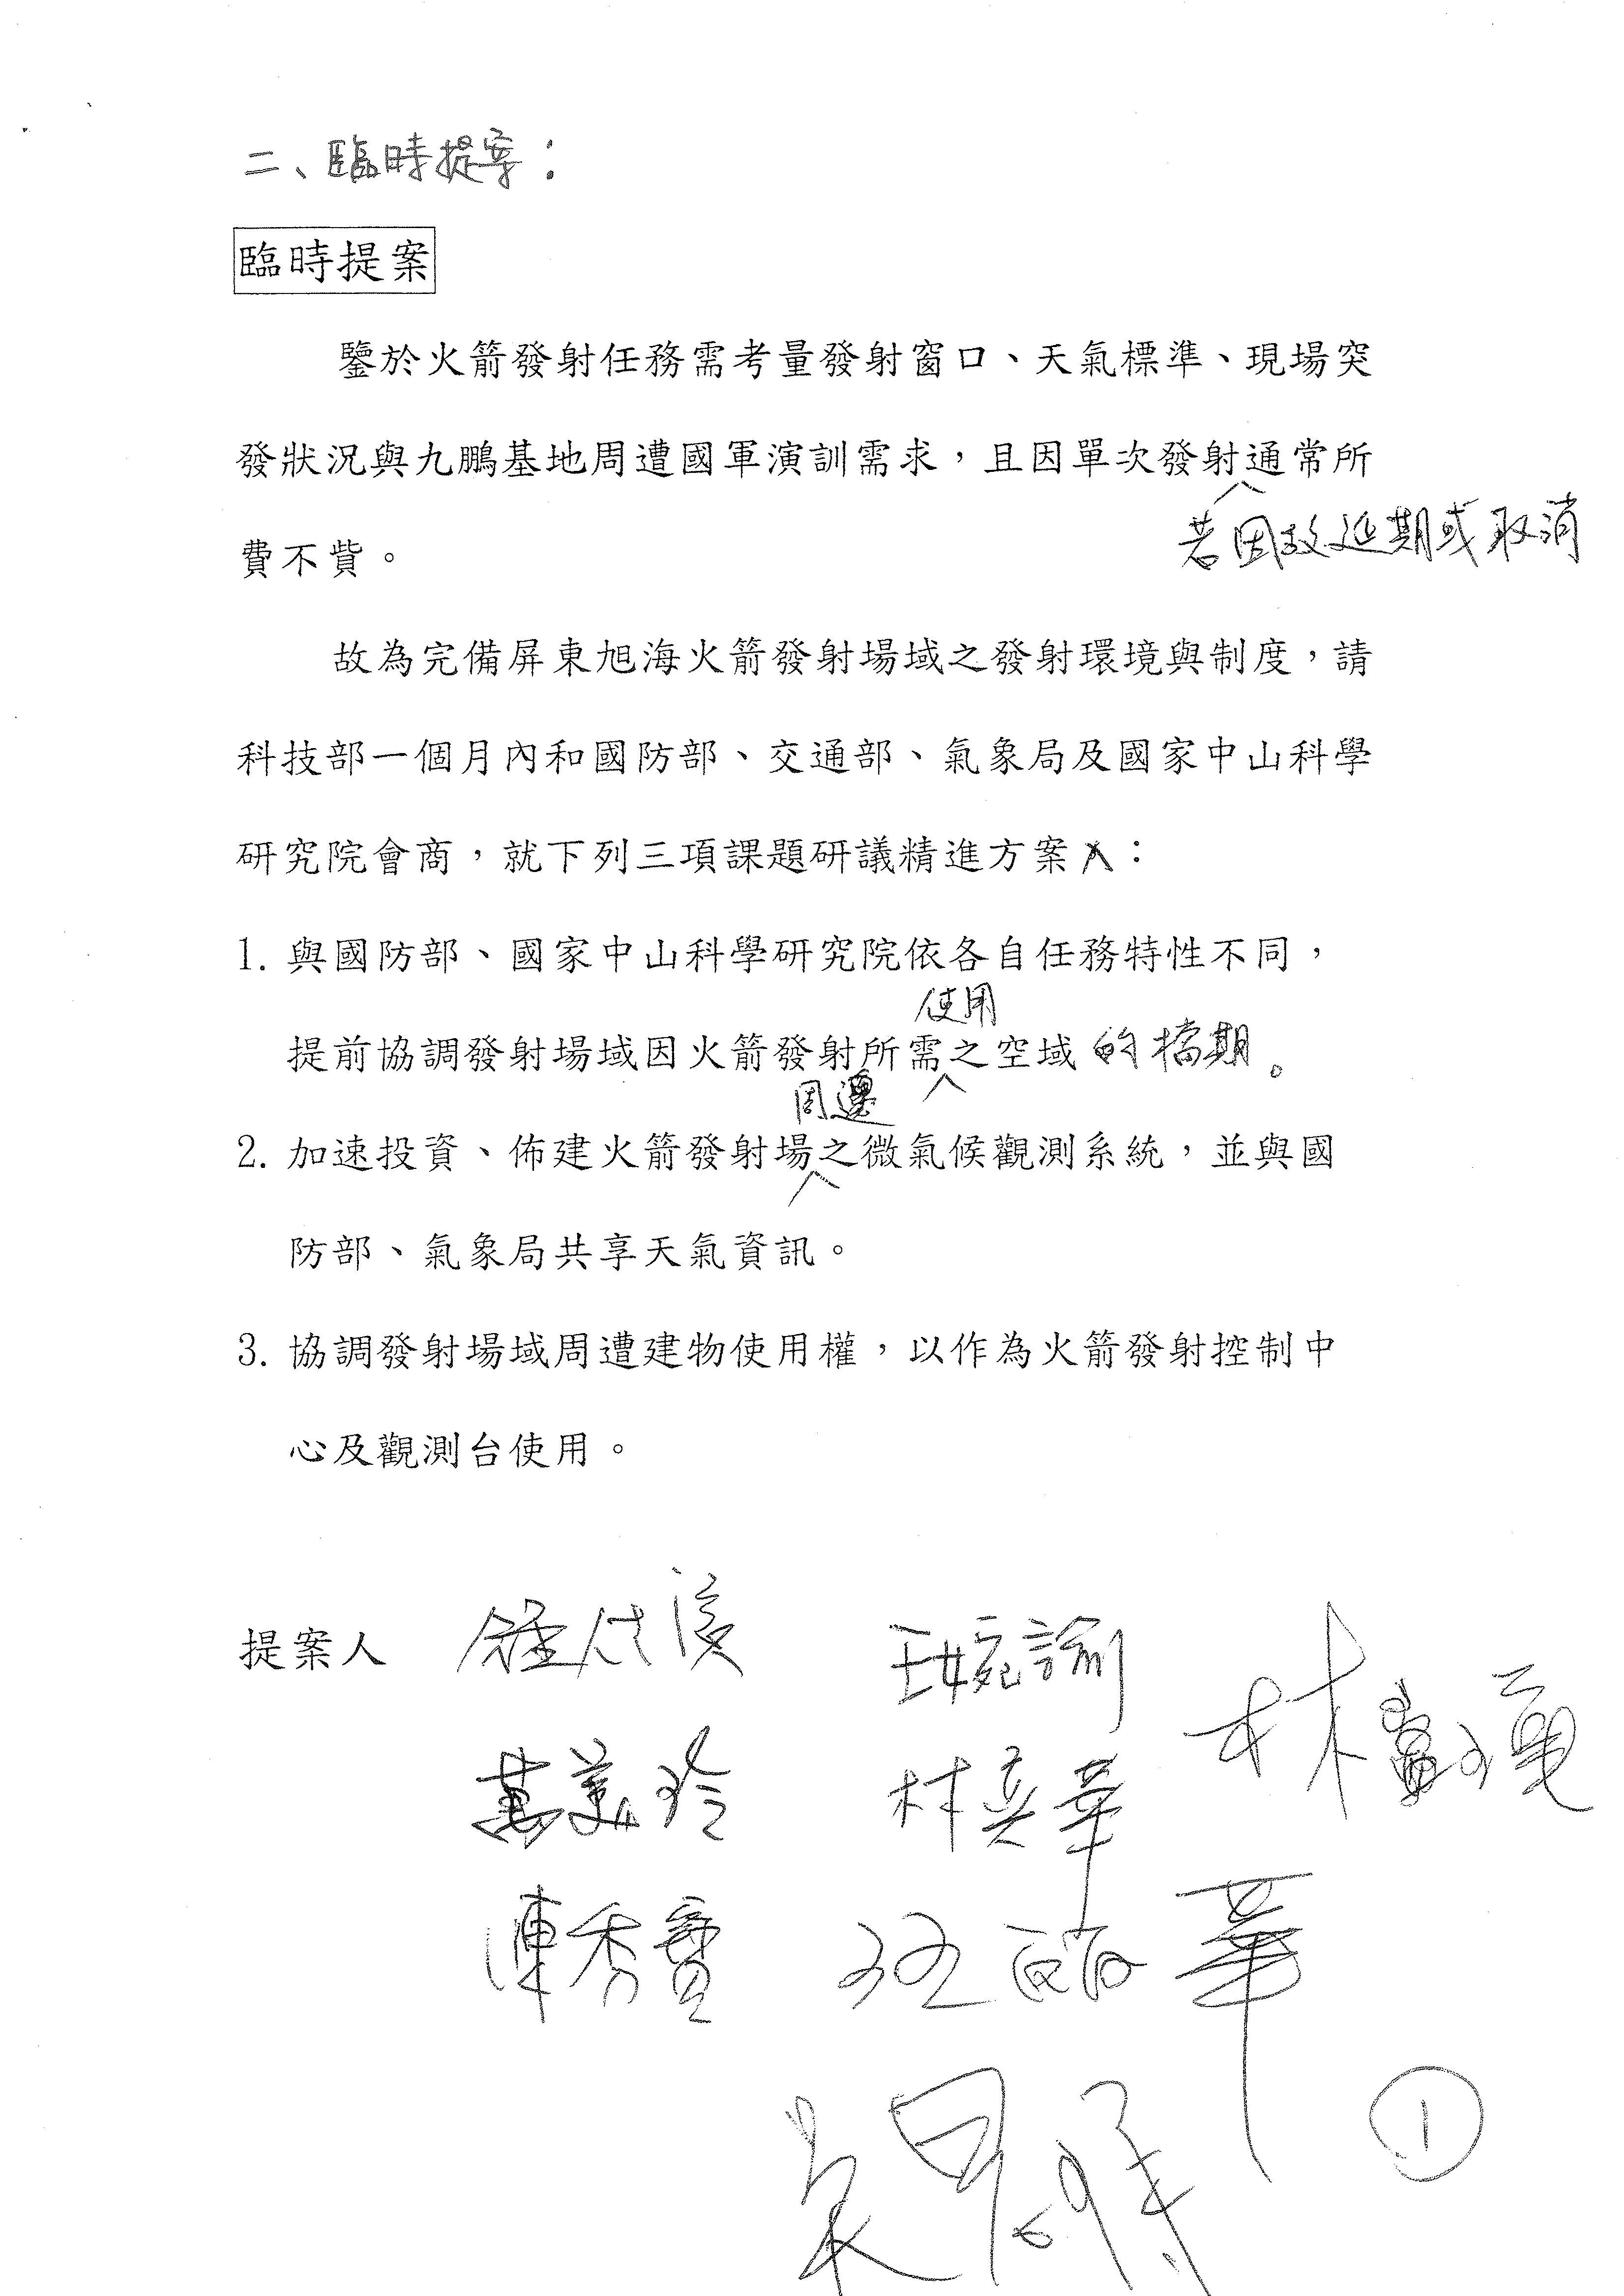 二、臨時提案：
臨時提案
鑒於火箭發射任務需考量發射窗口、天氣標準、現場突
發狀況與九鵬基地周遭國軍演訓需求，且因單次發射通常所
若因故延期或取消
費不貲。
故為完備屏東旭海火箭發射場域之發射環境與制度，請
科技部一個月內和國防部、交通部、氣象局及國家中山科學
研究院會商，就下列三項課題研議精進方案：
1. 與國防部、國家中山科學研究院依各自任務特性不同，
使用
提前協調發射場域因火箭發射所需之空域的檔期。
周邊
2. 加速投資、佈建火箭發射場之微氣候觀測系統，並與國
防部、氣象局共享天氣資訊。
3. 協調發射場域周遭建物使用權，以作為火箭發射控制中
心及觀測台使用。
提案人
王婉諭
萬美玲
林奕華
陳秀寳
1